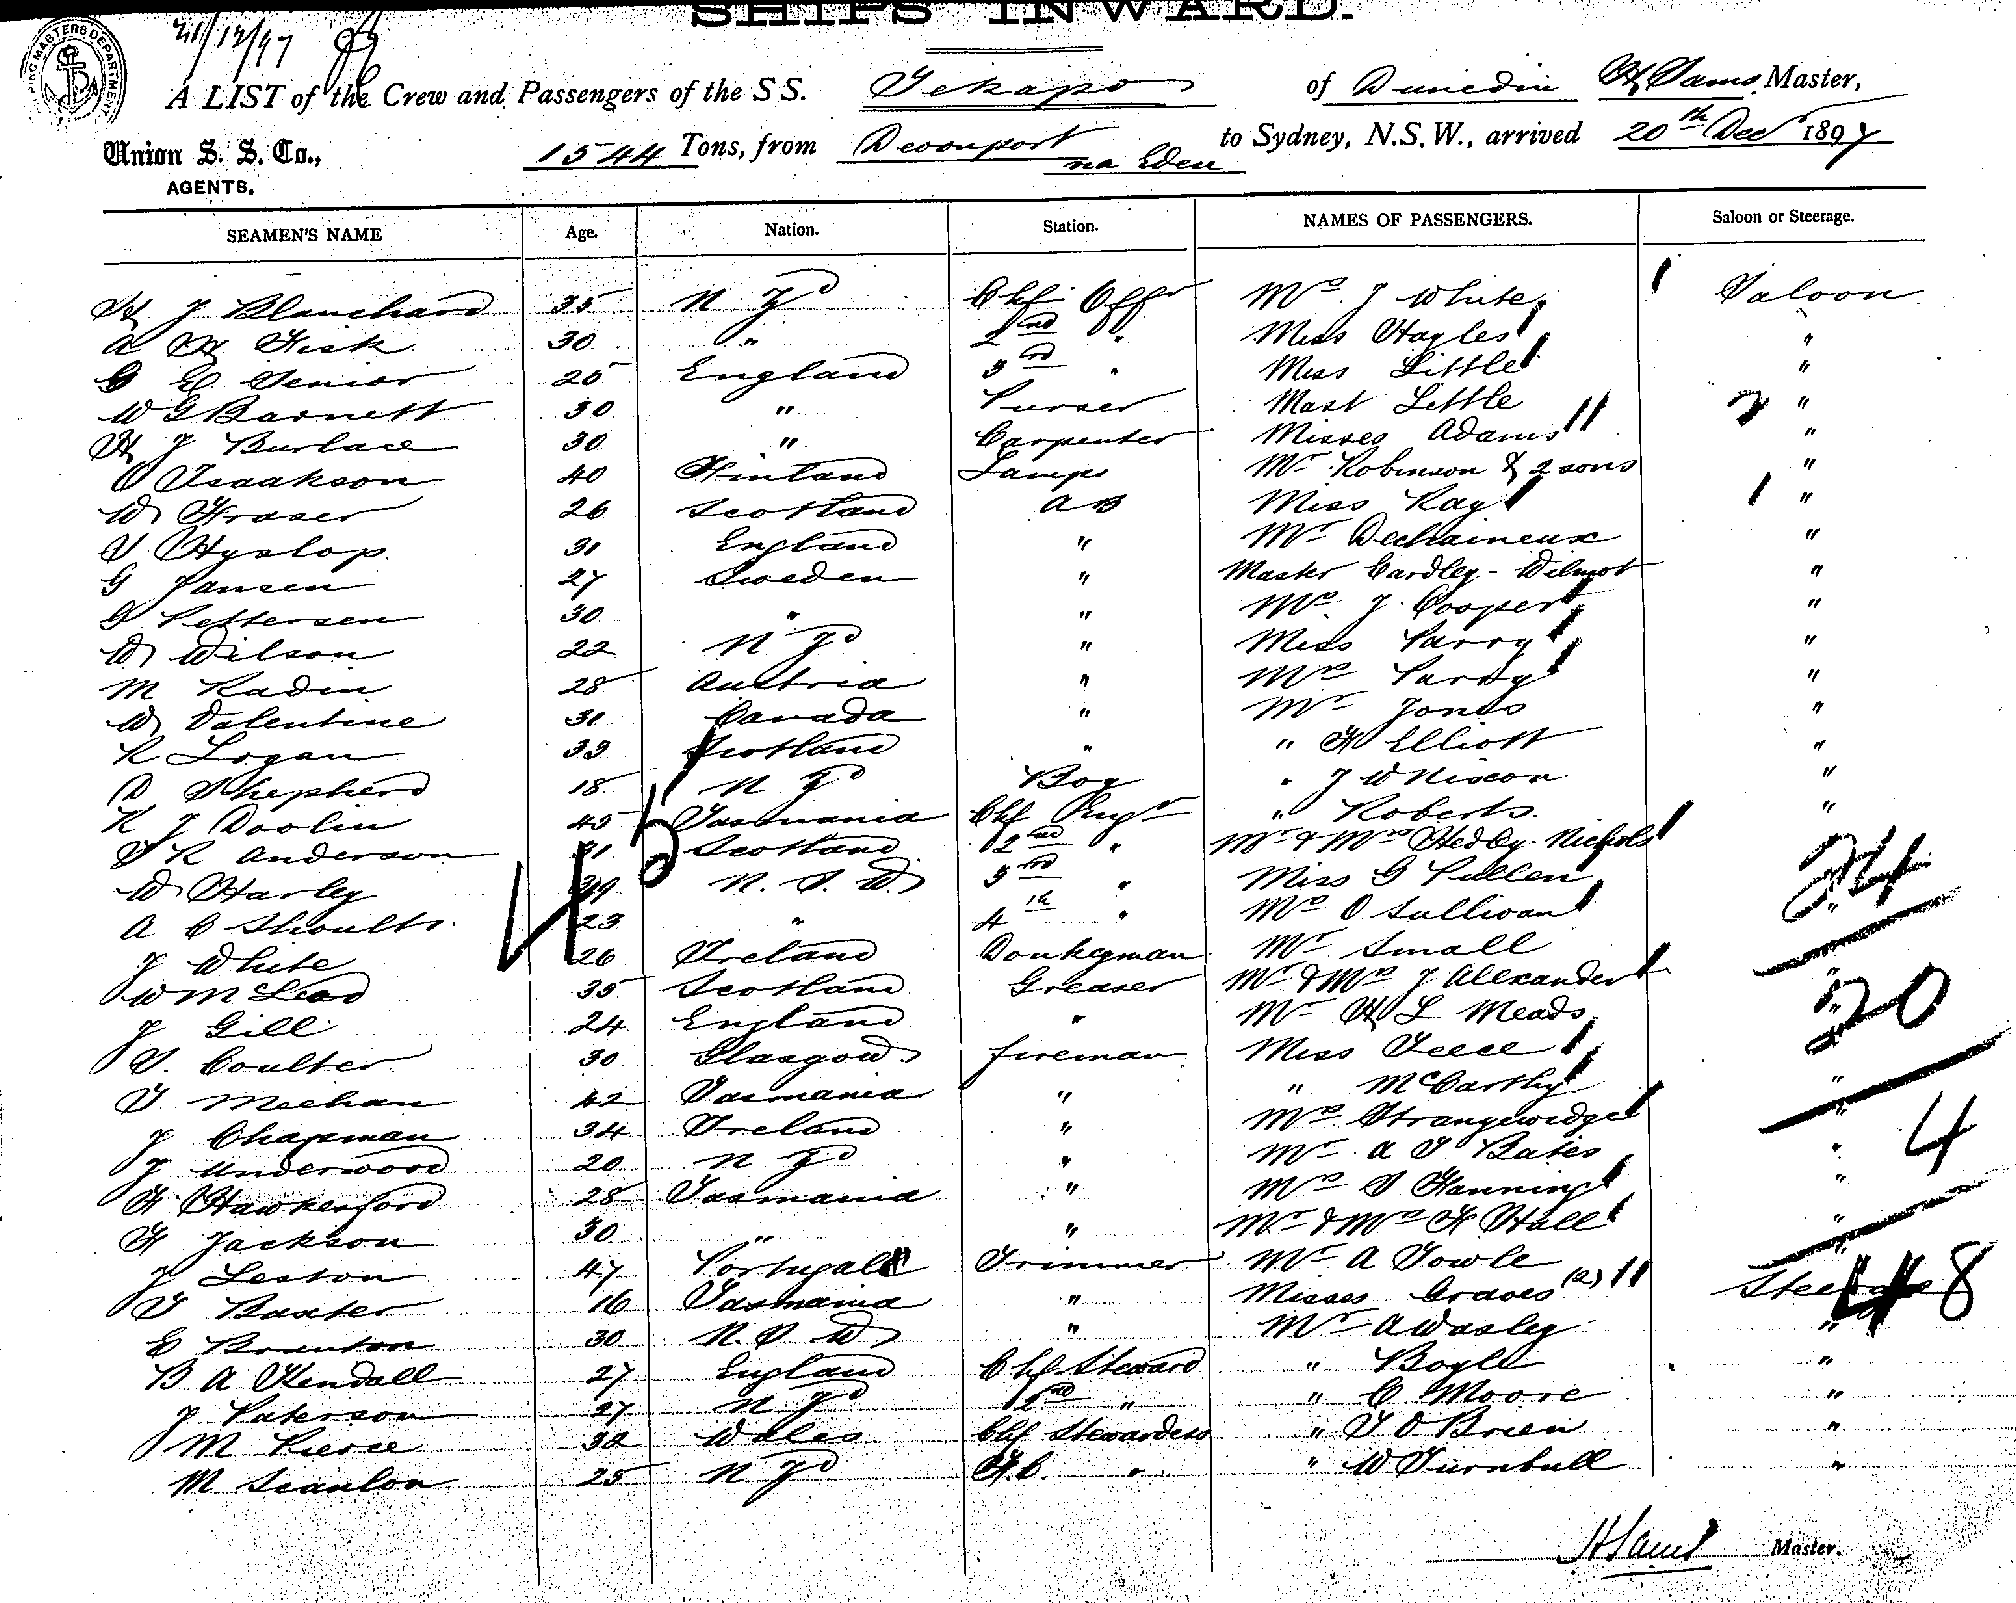 SHIPS INWARD.
21/12/97
A LIST of the Crew and Passengers of the S S. Tekapo of Dunedin H Sams Master,
Union S. S. Co., 1544 Tons, from Devonport via Eden to Sydney, N.S.W., arrived 20th Dec 1897
AGENTS.
SEAMEN'S NAME Age. Nation. Station. NAMES OF PASSENGERS. Saloon or Steerage.
H J Blanchard 35 N Zd Chf Offr Mrs J White Saloon
A W Fisk 30 " 2nd " Miss Hayles "
G E Senior 25 England 3rd " Miss Little "
W G Barnett 30 " Purser Mast Little 2 "
H J Burlace 30 " Carpenter Misses Adams "
O Isaakson 40 Finland Lamps Mr Robinson & 2 sons "
W Fraser 26 Scotland AB Miss Ray "
T Hyslop 31 England " Mr Dechaineux "
G Jansen 27 Sweden " Master Eardley-Wilmot "
G Pettersen 30 " " Mrs J. Cooper "
W Wilson 22 N Zd " Miss Parry "
M Radin 28 Austria " Mrs Parry "
W Valentine 31 Canada " Mr Jones "
R Logan 33 Scotland " " H Elliott "
D Shepherd 18 N Zd Boy " J W Nixon "
R J Doolin 45 Tasmania Chf Engr " Roberts. "
T R Anderson 31 Scotland 2nd " Mr & Mrs Hedley Nichols
W Harley 39 N. S. W. 3rd " Miss G Pullen 24
A C Shoults 23 " 4th " Mrs O Sullivan
J White 26 Ireland Donkeyman Mr Small
W McLeod 35 Scotland Greaser Mr & Mrs J Alexander "
J Gill 24 England " Mr H L Meads 20
T. Coulter 30 Glasgow fireman Miss Teece
T Meehan 42 Tasmania " " McCarthy "
J Chapman 34 Ireland " Mrs Strangewidge "
J Underwood 20 N Zd " Mr A T Bates " 4
H Hawkesford 28 Tasmania " Mrs T Fanning "
H Jackson 30 " " Mr & Mrs H Hall "
J Leston 47 Portugal Trimmer Mr A Towle
T Baxter 16 Tasmania " Misses Graves (2) Steerage 8
E Brunton 30 N. S. W " Mr A Wasley "
B A Kendall 27 England Chf Steward " Boyle "
J Paterson 27 N Zd 2nd " " C Moore "
M Pierce 32 Wales Chf Stewardess " T O Brien "
M Scanlon 25 N Zd F.C. " " W Turnbull "
45
H Sams Master.